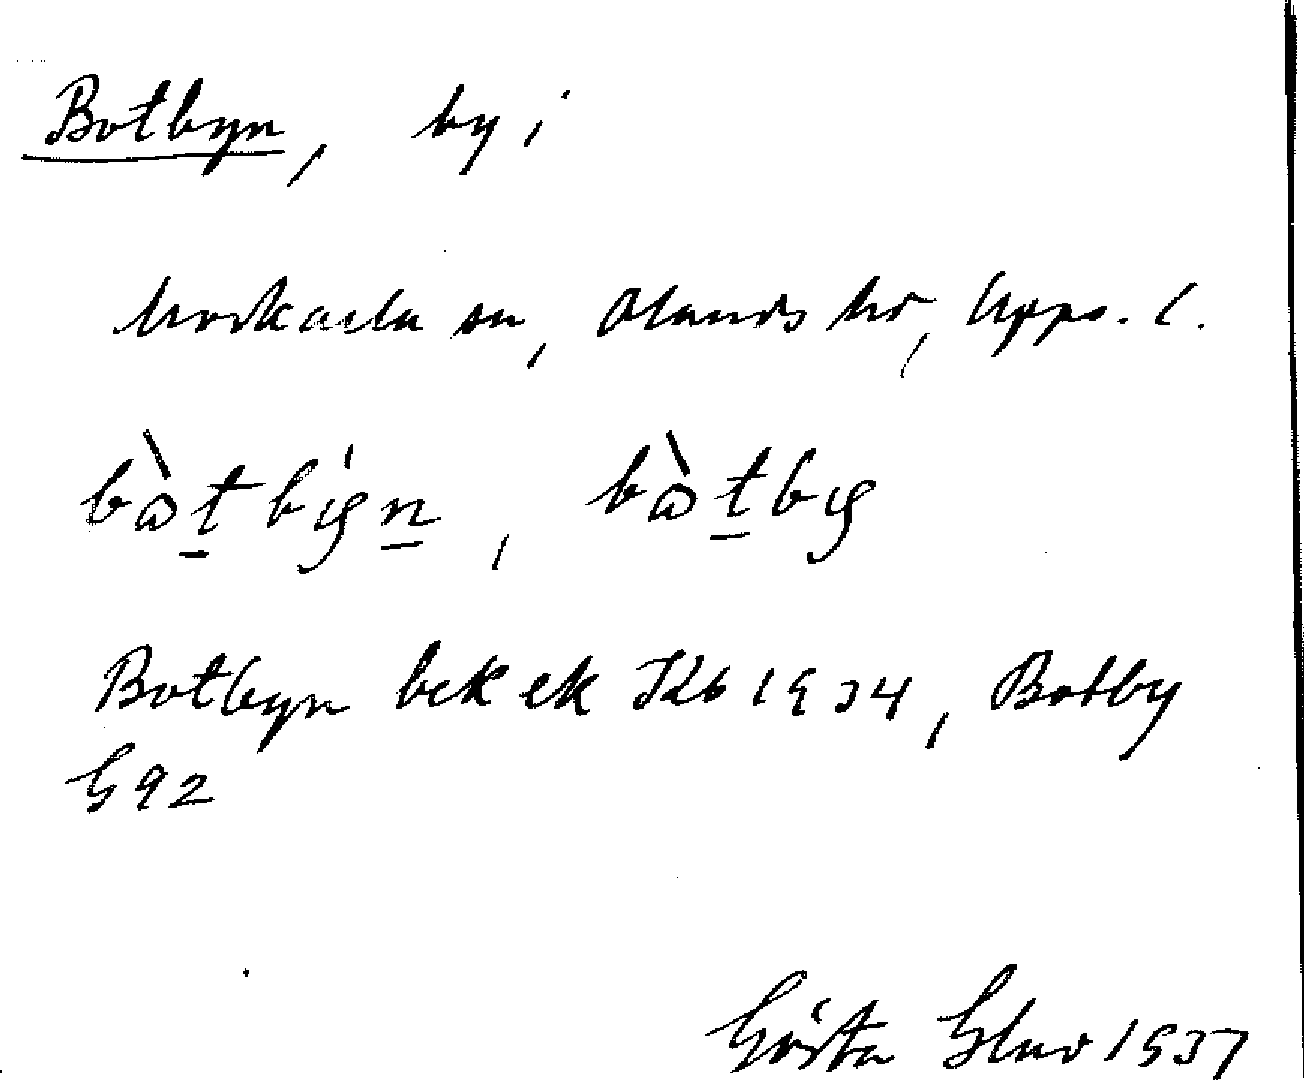 Botbyn, by i
Morkarla sn, Olands hd, Upps. l.
bὼt̲býn̲, bὼt̲by
Botbyn bek ek Kb 1934, Botby
G 92
Gösta 1937